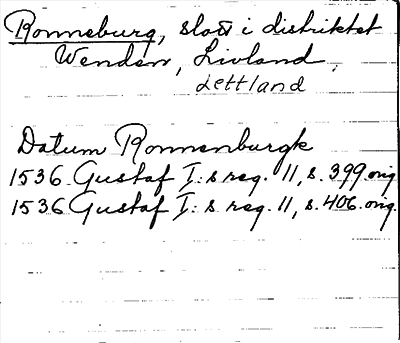 Ronneburg, slott i distriktet
Wenden, Livland,
Lettland
Datum Ronnenburgk
1536 Gustaf I:s reg. 11, s. 399 orig.
1536 Gustaf I:s reg. 11, s. 406. orig.